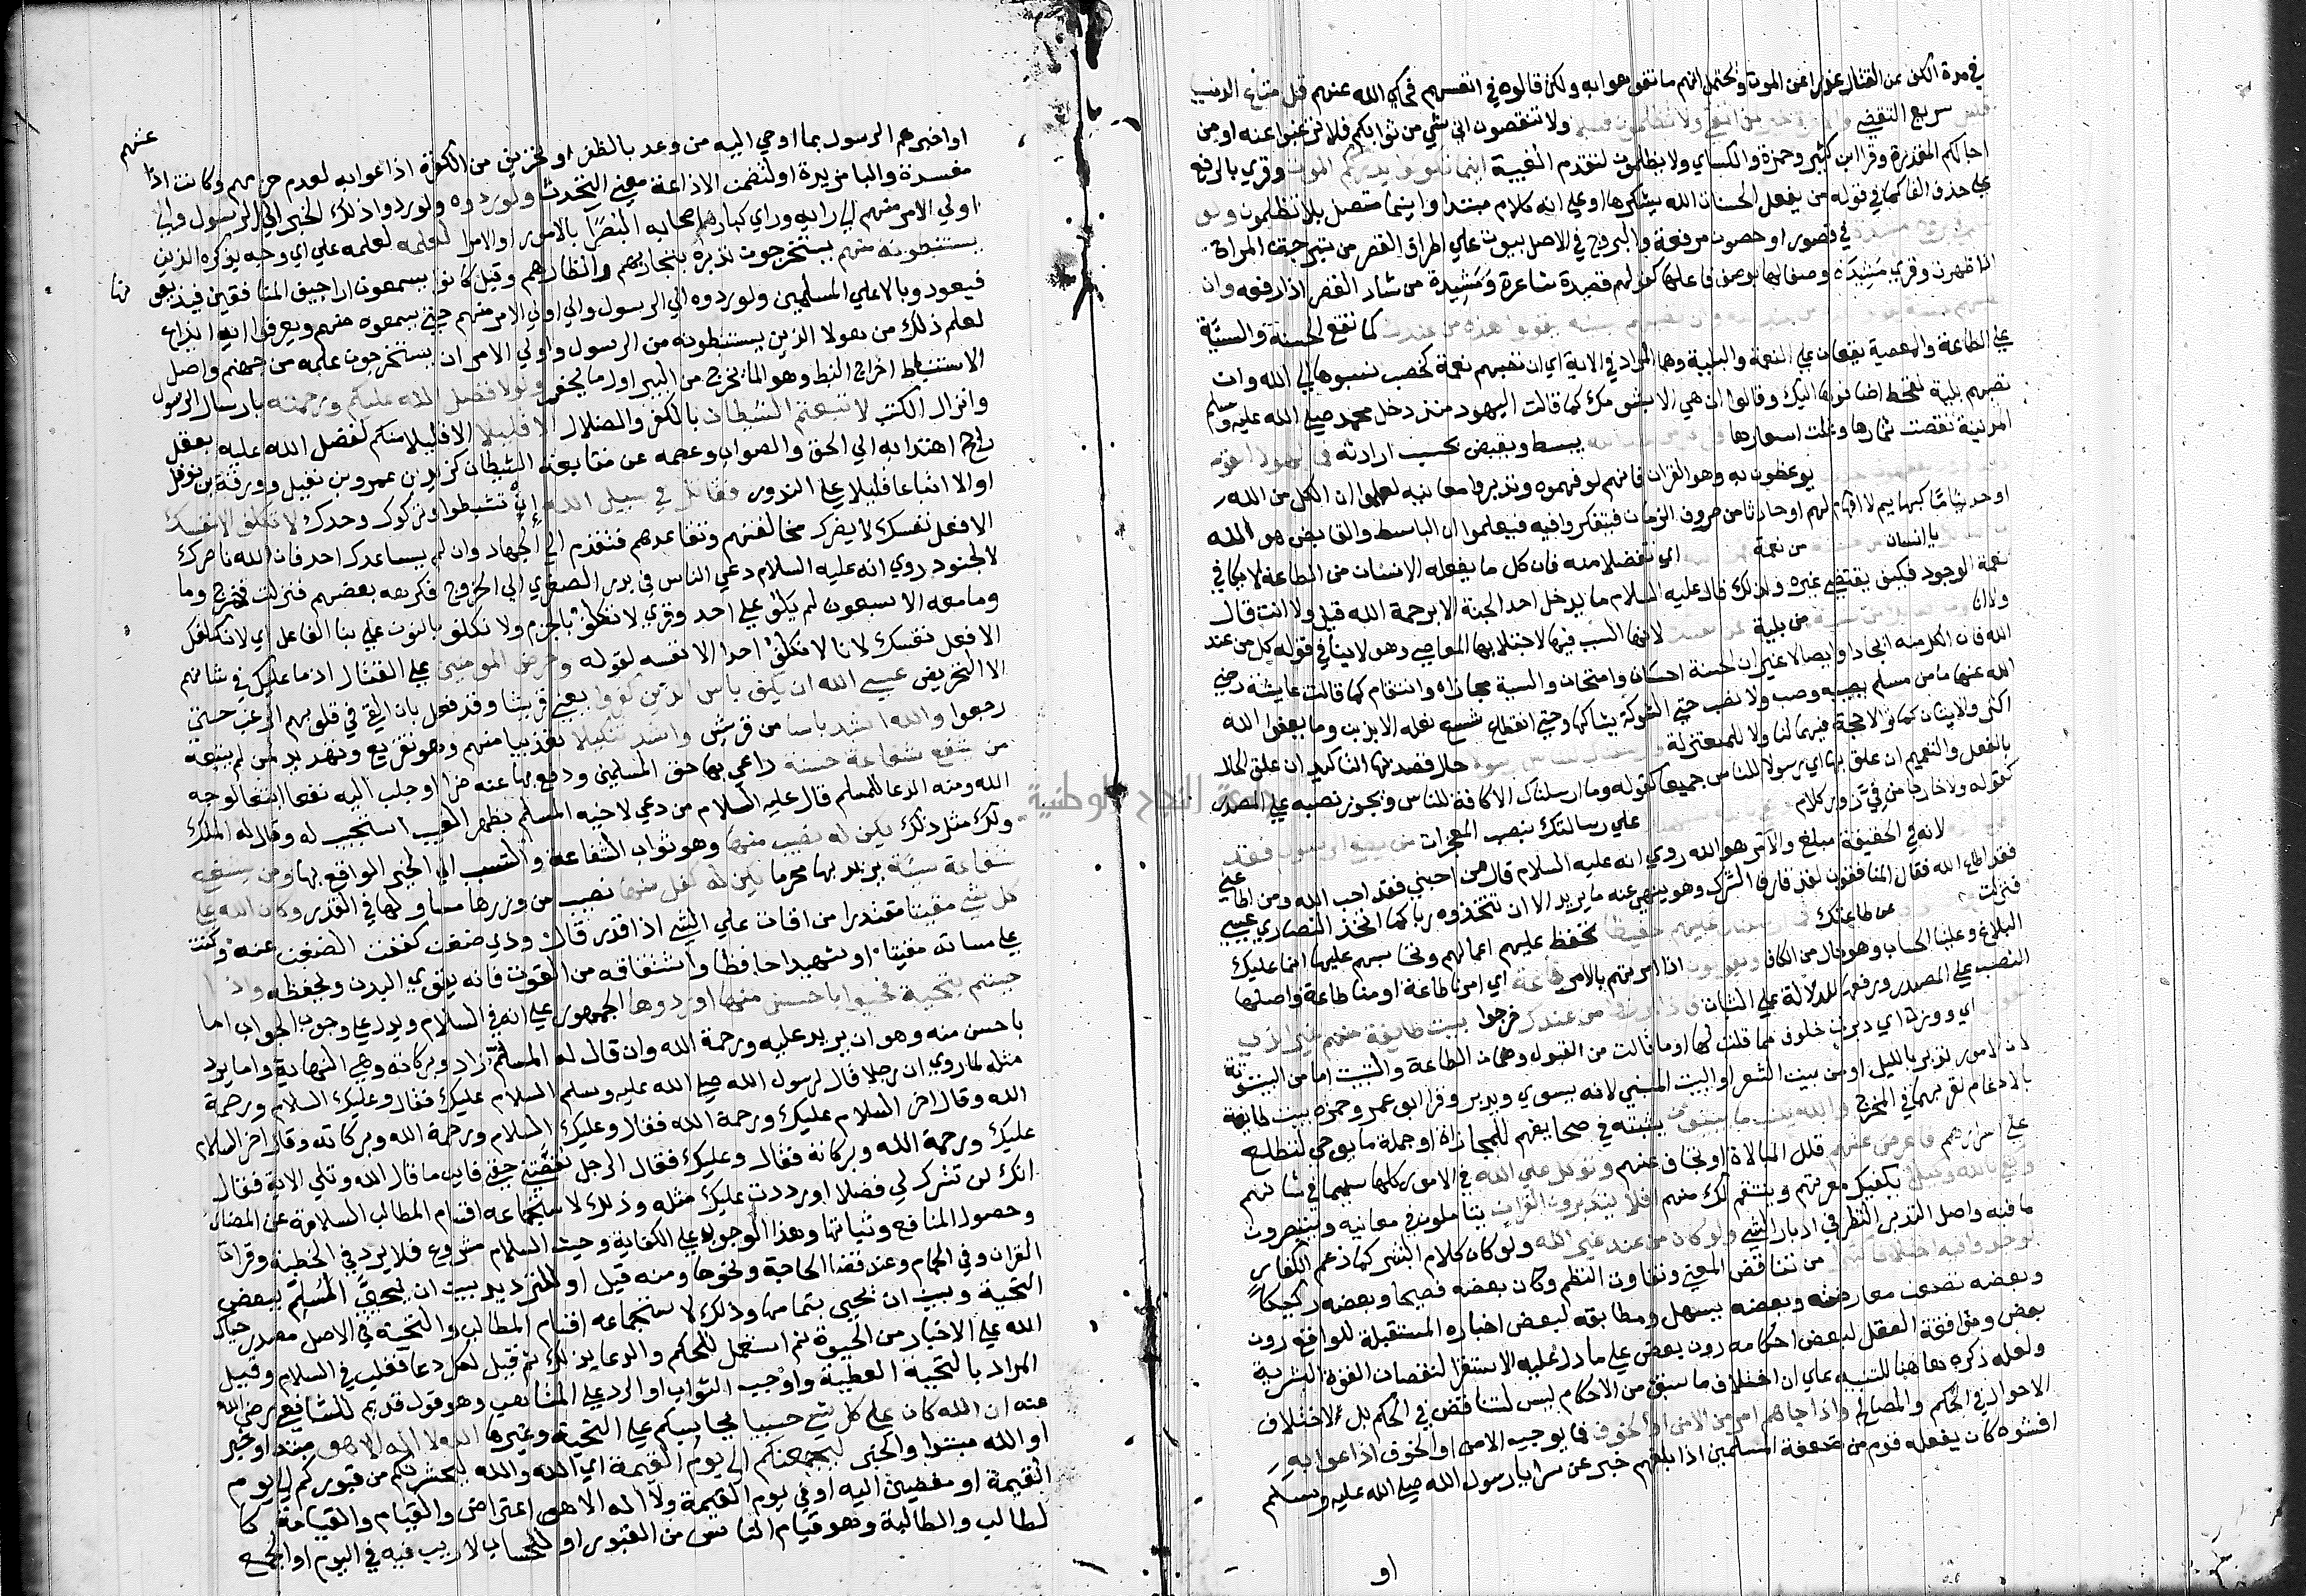 في مدة الكف عن القتال حذرا عن الموت ويحتمل انهم ما تفوهوا به ولكن قالوه في انفسهم فحكي الله عنهم قل متاع الدنيا
قليل سريع التقضي والاخرة خير لمن اتقي ولا تظلمون فتيلا ولا تنقصون ادني شي من ثوابكم فلا ترغبوا عنه او من
اجالكم المقدرة وقرا ابن كثير وحمزة والكساي ولا يظلمون لتقدم الغيبة اينما تكونوا يدرككم الموت وقري بالرفع
علي حذف الفا كما في قوله من يفعل الحسنات الله يشكرها او علي انه كلام مبتدا واينما متصل بلا تظلمون ولو
كنتم في بروج مشيدة في قصور او حصون مرفعة والبروج في الاصل بيوت علي اطراف القصر من تبرجت المراة
اذا ظهرت وقري مشيدة وصفا لها بوصف فاعلها كقولهم قصيدة شاعرة ومشيدة من شاد القصر اذا رفعه وان
تصبهم حسنة يقولوا هذه من عند الله وان تصبهم سيئة يقولوا هذه من عندك كما تقع الحسنة والسيئة
علي الطاعة والمعصية يقعان علي النعمة والبلية وهما المراد في الاية اي ان تصبهم نعمة كخصب نسبوها الي الله وان
تصبهم بلية كقحط اضافوها اليك وقالوا ان هي الا بشومك كما قالت اليهود منذ دخل محمد صلي الله عليه وسلم
المدينة نقصت ثمارها وغلت اسعارها قل كل من عند الله يبسط ويقبض بحسب ارادته فمال هولا القوم
يوعظون به وهو القران فانهم لو فهموه وتدبروا معانيه لعلموا ان الكل من الله
او حديثا ما كبهايم لا افهام لهم او حادثا من صروف الزمان فيتفكروا فيه فيعلموا ان الباسط والقابض هو الله
يا انسان من نعمة اي تفضلا منه فان كل ما يفعله الانسان من الطاعة لا يكافي
نعمة الوجود فكيف يقتضي غيره ولذلك قال عليه السلام ما يدخل احد الجنة الا برحمة الله قيل ولا انت قال
ولا انا من بلية فمن نفسك لانها السبب فيها لاجتلابها المعاصي وهو لا ينافي قوله كل من عند
الله فان الكل منه ايجادا وايصالا غير ان الحسنة احسان وامتحان والسيئة مجازاة وانتقام كما قالت عايشة رضي
الله عنها ما من مسلم يصيبه وصب ولا نصب حتي الشوكة يشاكها وحتي انقطاع شسع نعله الا بذنب وما يعفوا الله
اكثر والايتان كما تري لا حجة فيهما لنا ولا للمعتزلة وارسلناك للناس رسولا حال قصد بها التاكيد ان علق الجار
بالفعل والتعميم ان علق بها اي رسولا للناس جميعا كقوله وما ارسلناك الا كافة للناس ويجوز نصبه علي المصدر
كقوله ولا خارجا من في زور كلام علي رسالتك بنصب المعجزات من يطع الرسول فقد
لانه في الحقيقة مبلغ والآمر هو الله روي انه عليه السلام قال من احبني فقد احب الله ومن اطاعني
فقد اطاع الله فقال المنافقون لقد قارف الشرك وهو ينهي عنه ما يريد الا ان نتخذه ربا كما اتخذ النصاري عيسي
فنزلت عن طاعتك فما ارسلناك عليهم حفيظا تحفظ عليهم اعمالهم وتحاسبهم عليها انما عليك
البلاغ وعلينا الحساب وهو حال من الكاف ويقولون اذا امرتهم بالامر طاعة اي امرنا طاعة او منا طاعة واصلها
النصب علي المصدر ورفعها للدلالة علي الثبات فاذا برزوا من عندك خرجوا بيت طايفة منهم غير الذي
تقول اي زورت اي دبرت خلاف ما قلت لها او ما قالت من القبول وضمان الطاعة والتبييت اما من البيتوتة
لان الامور تدبر بالليل او من بيت الشعر او البيت المبني لانه يسوي ويدبر وقرا ابو عمرو وحمزه بيت طايفة
بالادغام لقربهما في المخرج والله يكتب ما يبيتون يثبته في صحايفهم للمجازاة او جملة ما يوحي لتطلع
علي اسرارهم فاعرض عنهم قلل المبالاة او تجاف عنهم وتوكل علي الله في الامور كلها سيما في شانهم
وكفي بالله وكيلا يكفيك معرتهم وينتقم لك منهم افلا يتدبرون القران يتاملون في معانيه ويتبصرون
ما فيه واصل التدبر النظر في ادبار الشي ولو كان من عند غير الله ولو كان كلام البشر كما زعم الكفار
لوجدوا فيه اختلافا كثيرا من تناقض المعني وتفاوت النظم وكان بعضه فصيحا وبعضه ركيكا
وبعضه تصعب معارضته وبعضه يسهل ومطابقه لبعض اخباره المستقبلة للواقع دون
بعض وموافقة العقل لبعض احكامه دون بعض علي ما دل عليه الاستقرا لنقصان القوة البشرية
ولعله ذكره هاهنا للتنبيه علي ان اختلاف ما سبق من الاحكام ليس لتناقض في الحكم بل لاختلاف
الاحوال في الحكم والمصالح واذا جاهم امر من الامن او الخوف مما يوجب الامن او الخوف اذاعوا به
افشوه كان يفعله قوم من ضعفة المسلمين اذا بلغهم خبر عن سرايا رسول الله صلي الله عليه وسلم
او
او اخبرهم الرسول بما اوحي اليه من وعد بالظفر او تخويف من الكفرة اذاعوا به لعدم حزمهم وكانت اذا عتهم
مفسدة والبا مزيدة او لتضمن الاذاعة معني التحدث ولو ردوه ولو ردوا ذلك الخبر الي الرسول والي
اولي الامر منهم الي رايه وراي كبار اصحابه البصرا بالامور او الامرا لعلمه لعلمه علي اي وجه يذكره الذين
يستنبطونه منهم يستخرجون تدبيره بتجاربهم وانظارهم وقيل كانوا يسمعون اراجيف المنافقين فيذيعونها
فيعود وبالا علي المسلمين ولو ردوه الي الرسول والي اولي الامر منهم حتي يسمعوه منهم ويعرفوا انه يذاع
لعلم ذلك من هولا الذين يستنبطونه من الرسول واولي الامر ان يستخرجون علمه من جهتهم واصل
الاستنباط اخراج النبط وهو الما يخرج من البير اول ما يحفر ولولا فضل الله عليكم ورحمته بارسال الرسول
وانزال الكتب لاتبعتم الشيطان بالكفر والضلال الا قليلا الا قليلا منكم تفضل الله عليه بعقل
راجح اهتدا به الي الحق والصواب وعصمه عن متابعة الشيطان كزيد بن عمرو بن نفيل وورقة بن نوفل
او الا اتباعا قليلا علي الندور فقاتل في سبيل الله ان تثبطوا وتركوك وحدك لا تكلف الا نفسك
الا فعل نفسك لا يضرك مخالفتهم وتقاعدهم فتقدم الي الجهاد وان لم يساعدك احد فان الله ناصرك
لا الجنود روي انه عليه السلام دعي الناس في بدر الصغري الي الخروج فكرهه بعضهم فنزلت فخرج وما
وما معه الا سبعون لم يلو علي احد وقري لا تكلف بالجزم ولا نكلف بالنون علي بنا الفاعل اي لا نكلفك
الا فعل نفسك لا انا لا نكلف احدا الا نفسه لقوله وحرض المومنين علي القتال اذ ما عليك في شانهم
الا التحريض عسي الله ان يكف باس الذين كفروا يعني قريشا وقد فعل بان القي في قلوبهم الرعب حتي
رجعوا والله اشد باسا من قريش واشد تنكيلا تعذيبا منهم وهو تقريع وتهديد لمن لم يتبعه
من يشفع شفاعة حسنة راعي بها حق المسلمين ودفع بها عنه ضرا او جلب اليه نفعا ابتغا لوجه
الله ومنه الدعا للمسلم قال عليه السلام من دعي لاخيه المسلم بظهر الغيب استجيب له وقال له الملك
ولك مثل ذلك يكن له نصيب منها وهو ثواب الشفاعة والتسبب الي الخير الواقع بها ومن يشفع
شفاعة سيئة يريد بها محرما يكن له كفل منها نصيب من وزرها مساو لها في القدر وكان الله علي
كل شي مقيتا مقتدرا من اقات علي الشي اذا قدر قال وذي ضغن كففت الضغن عنه وكنت
علي مساته مقيتا او شهيدا حافظا واشتقاقه من القوت فانه يقوي البدن ويحفظه واذا
حييتم بتحية فحيوا باحسن منها او ردوها الجمهور علي انه في السلام ويدل علي وجوب الجواب اما
باحسن منه وهو ان يزيد عليه ورحمة الله وان قال له المسلم زاد وبركاته وهي النهاية واما برد
مثله لما روي ان رجلا قال لرسول الله صلي الله عليه وسلم السلام عليك فقال وعليك السلام ورحمة
الله وقال اخر السلام عليك ورحمة الله فقال وعليك السلام ورحمة الله وبركاته وقال اخر السلام
عليك ورحمة الله وبركاته فقال وعليك فقال الرجل نقصتني حقي فاين ما قال الله وتلي الاية فقال
انك لن تترك لي فضلا او رددت عليك مثله وذلك لاستجماعه اقسام المطالب السلامة عن المضار
وحصول المنافع وثباتها وهذا الوجوب علي الكفاية وحيث السلام مشروع فلا يرد في الخطبة وقراة
القران وفي الحمام وعند قضا الحاجة ونحوها ومنه قيل او للترديد بين ان يحيي المسلم ببعض
التحية وبين ان يحيي بتمامها وذلك لاستجماعه اقسام المطالب والتحية في الاصل مصدر حياك
الله علي الاخبار من الحيوة ثم استعمل للحكم والدعا بذلك ثم قيل لكل دعا فغلب في السلام وقيل
المراد بالتحية العطية واوجب الثواب او الرد علي المتاهب وهو قول قديم للشافعي رضي الله
عنه ان الله كان علي كل شي حسيبا يحاسبكم علي التحية وغيرها الله لا اله الا هو مبتدا وخبر
او الله مبتدا والخبر ليجمعنكم الي يوم القيمة اي الله والله ليحشرنكم من قبوركم الي يوم
القيمة او مفضين اليه او في يوم القيمة ولا اله الا هو اعتراض والقيام والقيامة كا
لطالب والطالبة وهو قيام الناس من القبور او للحساب لا ريب فيه في اليوم او الجمع